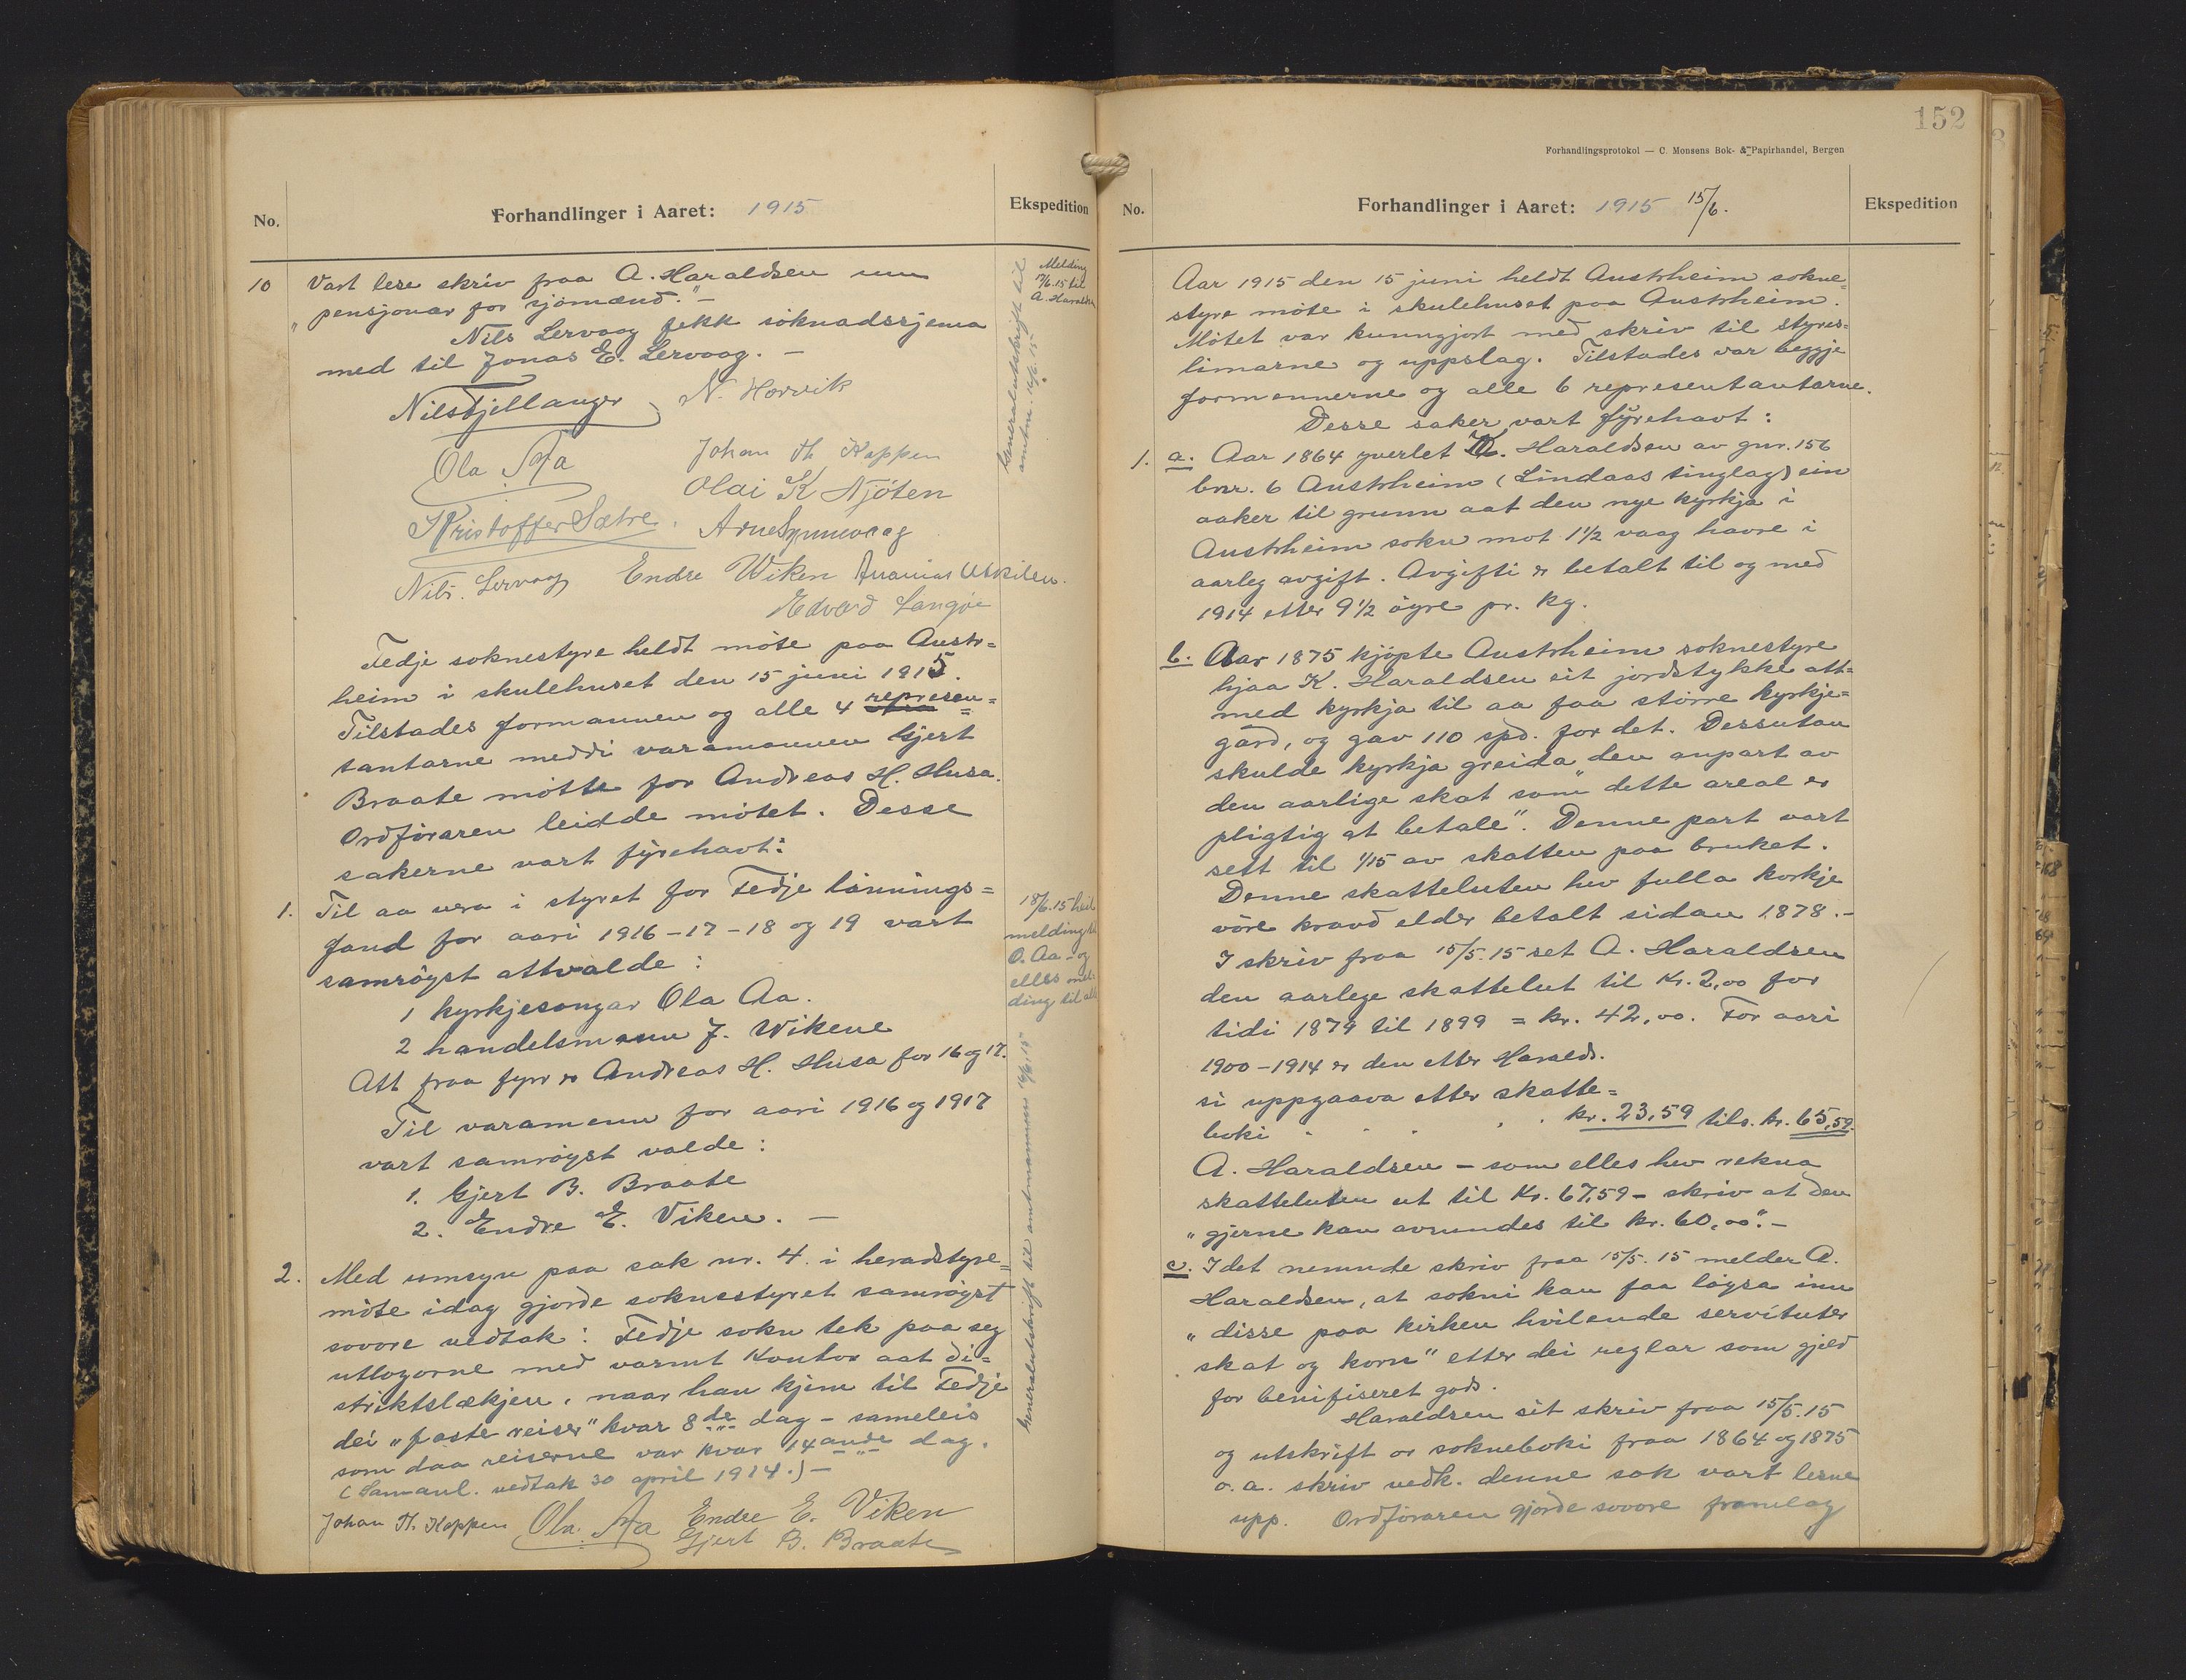 No.
Forhandlinger i Aaret: 1915
Ekspedition
10 Vart lese skriv fraa A. Haraldsen um
"pensjonar for sjömænd." –
Nils Lervaag fekk söknadsskjema
med til Jonas E. Lervaag. –
Melding
17/6.15 til
A. Haraldsen
Generalutskrift til
amtm. 16/6.15
Nils Fjellanger N. Horvik
Ola Aa Johan Th Koppen
Olai K Njöten
Kristoffer Sætre. Arne Synnevaag
Nils. Lervaag Endre Wiken Ananias Utkilen.
Edvard Langöe
Fedje soknestyre heldt möte paa Austr=
heim i skulehuset den 15 juni 1915.
Tilstades formannen og alle 4 represen=
tantarne meddi varamannen Gjert
Braate mötte for Andreas H. Husa.
Ordföraren leidde mötet. Desse
sakerne vart fyrehavt:
1. Til aa vera i styret for Fedje lönnings=
fond for aari 1916–17–18 og 19 vart
samröyst attvalde:
1 kyrkjesongar Ola Aa.
2 handelsmann J. Wikene
Att fraa fyrr er Andreas H. Husa for 16 og 17.
Til varamenn for aari 1916 og 1917
vart samröyst valde:
1. Gjert B. Braate
2. Endre E. Viken. –
18/6.15
melding til
O. Aa – og
elles mel-
ding til alle
2. Med umsyn paa sak nr. 4 i heradstyre=
möte idag gjorde soknestyret samröyst
sovore vedtak: Fedje sokn tek paa seg
utlogorne med varmt kontor aat di=
striktslækjen, naar han kjem til Fedje
dei "faste reiser" kvar 8de dag – sameleis
som daa reiserne var kvar 14ande dag.
(Samanl. vedtak 30 april 1914.) –
Generalutskrift til amtmannen 16/6.15
Johan Th. Koppen Ola. Aa Endre E. Viken
Gjert B. Braate
152
Forhandlingsprotokol — C. Monsens Bok- & Papirhandel, Bergen
No.
Forhandlinger i Aaret: 1915 15/6.
Ekspedition
Aar 1915 den 15 juni heldt Austrheim sokne=
styre möte i skulehuset paa Austrheim.
Mötet var kunngjort med skriv til styres=
limarne og uppslag. Tilstades var beggje
formennerne og alle 6 representantarne.
Desse saker vart fyrehavt:
1. a. Aar 1864 yverlet K. Haraldsen av gnr. 156
bnr. 6 Austrheim (Lindaas tinglag) ein
aaker til grunn aat den nye kyrkja i
Austrheim sokn mot 1½ vaag havre i
aarleg avgift. Avgifti er betalt til og med
1914 etter 9½ öyre pr. kg.
b. Aar 1875 kjöpte Austrheim soknestyre
hjaa K. Haraldsen eit jordstykke att=
med kyrkja til aa faa större kyrkje=
gard, og gav 110 spd. for det. Dessutan
skulde kyrkja greida den anpart av
den aarlige skat som "dette areal er
pligtig at betale". Denne part vart
sett til 1/15 av skatten paa bruket.
Denne skatteluten hev fulla korkje
vöre kravd elder betalt sidan 1878. –
I skriv fraa 15/5.15 set A. Haraldsen
den aarlege skattelut til Kr. 2,00 for
tidi 1879 til 1899 = kr. 42,00. For aari
1900–1914 er den etter Haralds.
si uppgaava etter skatte=
boki . . . . . kr. 23,59 tils. kr. 65,59.
A. Haraldsen – som elles hev rekna
skatteluten ut til Kr. 67,59 – skriv at den
"gjerne kan avrundes til kr. 60,00". –
c. I det nemnde skriv fraa 15/5.15 melder A.
Haraldsen, at sokni kan faa löysa inn
"disse paa kirken hvilende servituter
skat og korn" etter dei reglar som gjeld
for benifiseret gods.
Haraldsen sit skriv fraa 15/5.15
og utskrift or sokneboki fraa 1864 og 1875
o. a. skriv vedk. denne sak vart lesne
upp. Ordföraren gjorde sovore framlag